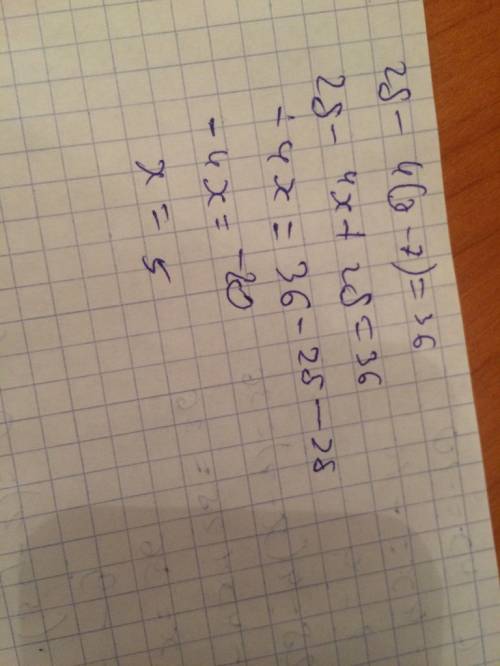 28 - 4(x - 7) = 36
28 - 4x + 28 = 36
- 4x = 36 - 28 - 28
- 4x = -20
x = 5